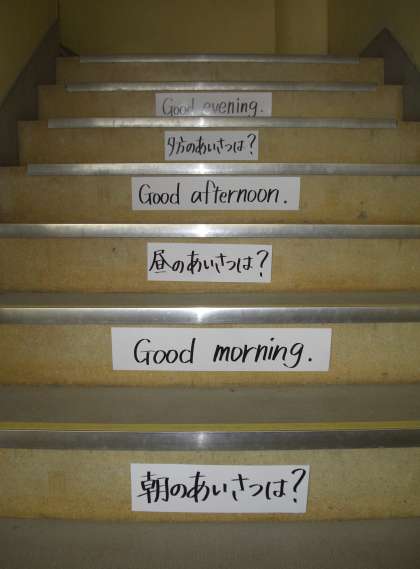 Good evening.
夕方のあいさつは?
Good afternoon.
昼のあいさつは?
Good morning.
朝のあいさつは?